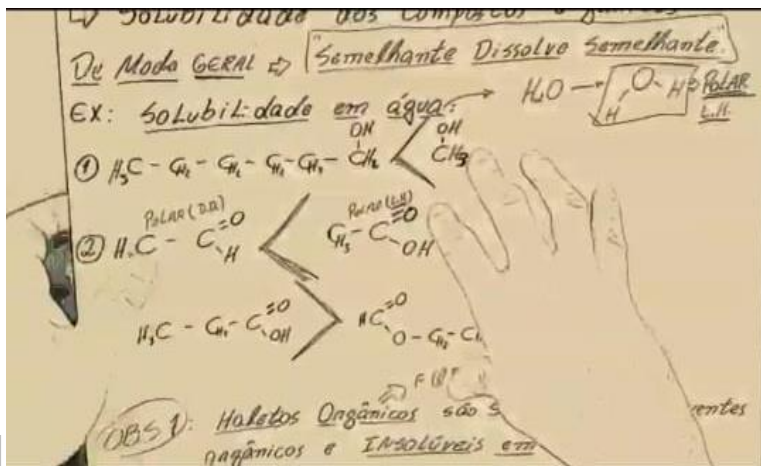 ⇨ Solubilidade dos Compostos
De Modo GERAL ⇨ "Semelhante Dissolve Semelhante"
EX: Solubilidade em água: H₂O → O H H POLAR L.H.
OH OH
① H₃C - CH₂ - CH₂ - CH₂ - CH₂ - CH₂ < CH₃
POLAR (D.D) POLAR (L.H)
② H₃C - C =O H < CH₃ - C =O OH
H₃C - CH₂ - C =O OH > HC =O O - CH₂ -
OBS 1: Haletos Orgânicos são
orgânicos e INSOLÚVEIS em